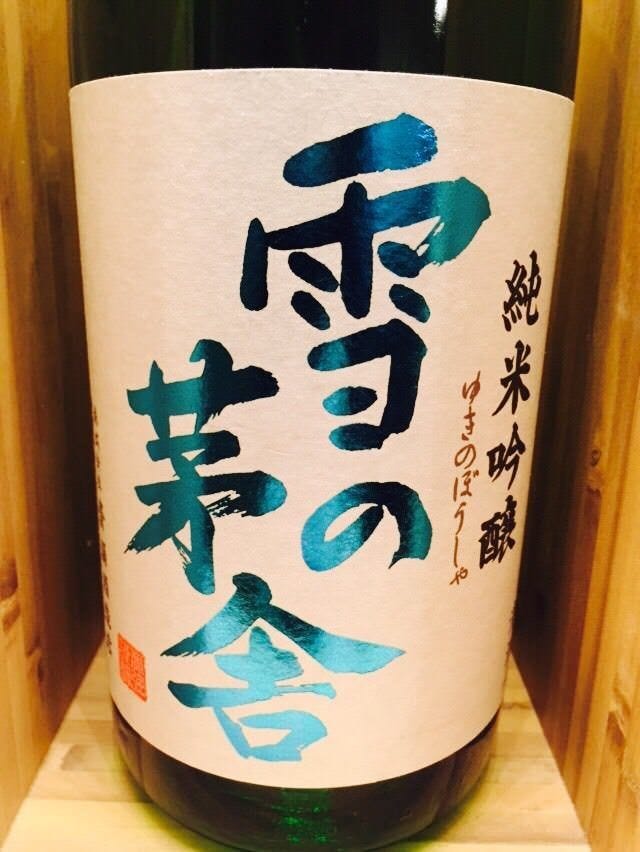 純米吟醸
ゆきのぼうしゃ
雪の
茅舎